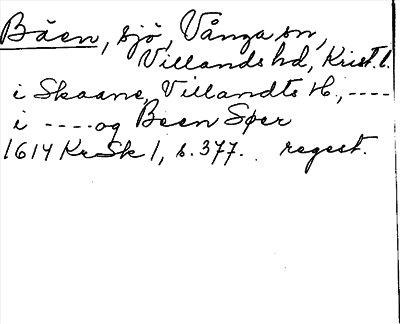 Båen, sjö, Vånga sn,
Villands hd, Krist. l.
i Skaane, Villandts H., ----
i ---- og Boen Søer
1614 KrSk 1, s. 377. regest.